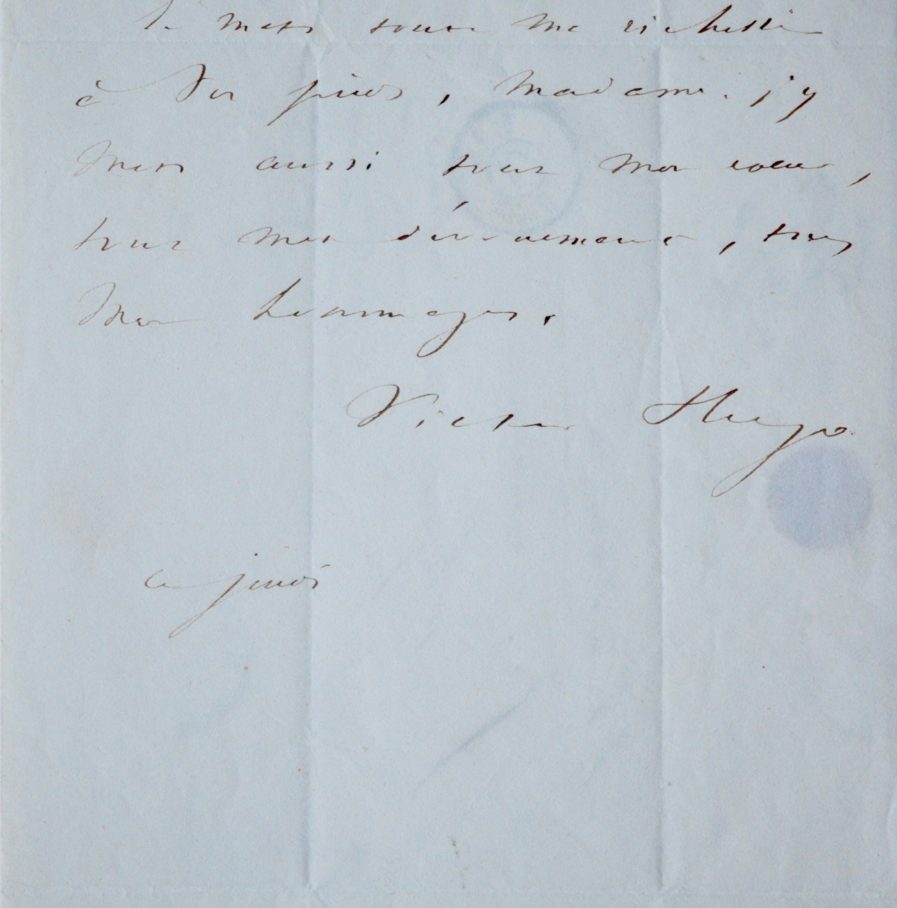 Je mets toute ma richesse
à vos pieds, Madame. j'y
mets aussi tout mon cœur,
tout mon dévouement, tous
mes hommages.
Victor Hugo
ce jeudi